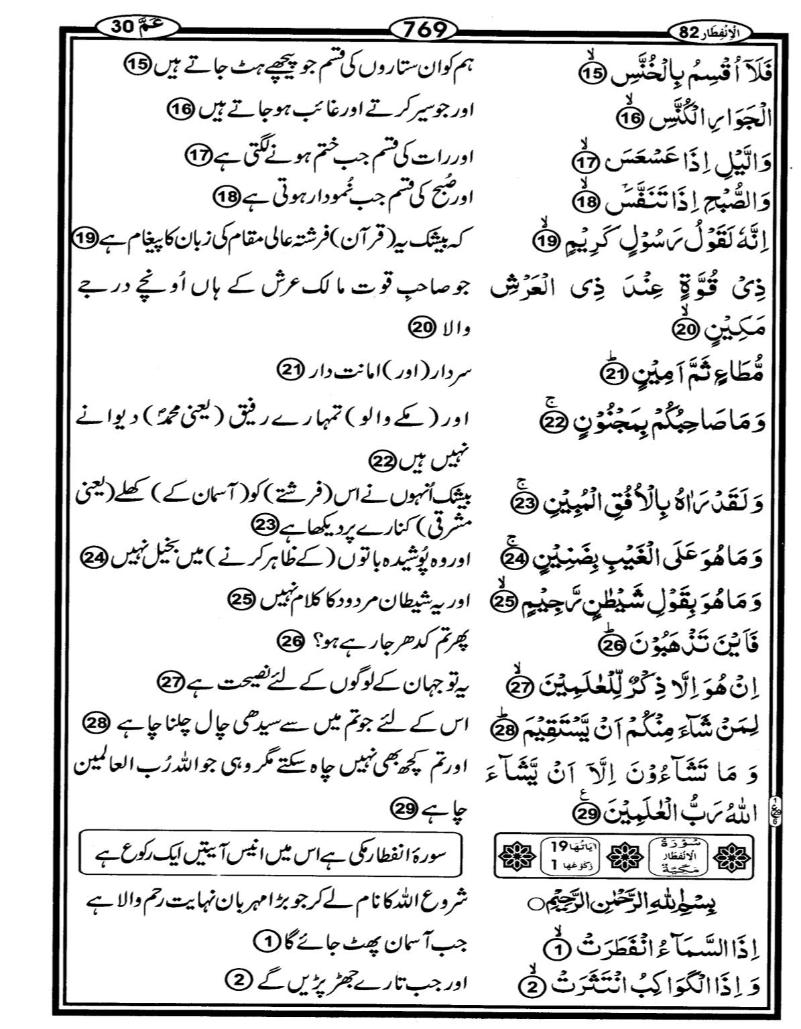 الانفطار 82 769 عمّ 30
فَلَآ اُقْسِمُ بِالْخُنَّسِ ۙ 15 ہم کو ان ستاروں کی قسم جو پیچھے ہٹ جاتے ہیں 15
الْجَوَارِ الْكُنَّسِ ۙ 16 اور جو سیر کرتے اور غائب ہو جاتے ہیں 16
وَالَّيْلِ اِذَا عَسْعَسَ ۙ 17 اور رات کی قسم جب ختم ہونے لگتی ہے 17
وَالصُّبْحِ اِذَا تَنَفَّسَ ۙ 18 اور صُبح کی قسم جب نُمودار ہوتی ہے 18
اِنَّهٗ لَقَوْلُ رَسُوْلٍ كَرِيْمٍ ۙ 19 کہ بیشک یہ (قرآن) فرشتہ عالی مقام کی زبان کا پیغام ہے 19
ذِيْ قُوَّةٍ عِنْدَ ذِي الْعَرْشِ جو صاحبِ قوت مالک عرش کے ہاں اُونچے درجے
مَكِيْنٍ ۙ 20 والا 20
مُّطَاعٍ ثَمَّ اَمِيْنٍ ؕ 21 سردار (اور) امانت دار 21
وَمَا صَاحِبُكُمْ بِمَجْنُوْنٍ ۚ 22 اور (مکے والو) تمہارے رفیق (یعنی محمدؐ) دیوانے
نہیں ہیں 22
وَلَقَدْ رَاٰهُ بِالْاُفُقِ الْمُبِيْنِ ۚ 23 بیشک اُنہوں نے اس (فرشتے) کو (آسمان کے) کھلے (یعنی
مشرقی) کنارے پر دیکھا ہے 23
وَمَا هُوَ عَلَى الْغَيْبِ بِضَنِيْنٍ ۚ 24 اور وہ پوشیدہ باتوں (کے ظاہر کرنے) میں بخیل نہیں 24
وَمَا هُوَ بِقَوْلِ شَيْطٰنٍ رَّجِيْمٍ ۙ 25 اور یہ شیطان مردود کا کلام نہیں 25
فَاَيْنَ تَذْهَبُوْنَ ؕ 26 پھر تم کدھر جا رہے ہو؟ 26
اِنْ هُوَ اِلَّا ذِكْرٌ لِّلْعٰلَمِيْنَ ۙ 27 یہ تو جہان کے لوگوں کے لئے نصیحت ہے 27
لِمَنْ شَآءَ مِنْكُمْ اَنْ يَّسْتَقِيْمَ ؕ 28 اس کے لئے جو تم میں سے سیدھی چال چلنا چاہے 28
وَ مَا تَشَآءُوْنَ اِلَّآ اَنْ يَّشَآءَ اور تم کچھ بھی نہیں چاہ سکتے مگر وہی جو اللہ رُب العالمین
اللّٰهُ رَبُّ الْعٰلَمِيْنَ ۧ 29 چاہے 29
سُوْرَةُ الْاِنْفِطَارِ مَكِّيَّةٌ اٰيَاتُهَا 19 رُكُوْعُهَا 1 سورۂ انفطار مکی ہے اس میں انیس آیتیں ایک رکوع ہے
بِسْمِ اللّٰهِ الرَّحْمٰنِ الرَّحِيْمِ شروع اللہ کا نام لے کر جو بڑا مہربان نہایت رحم والا ہے
اِذَا السَّمَآءُ انْفَطَرَتْ ۙ 1 جب آسمان پھٹ جائے گا 1
وَ اِذَا الْكَوَاكِبُ انْتَثَرَتْ ۙ 2 اور جب تارے جھڑ پڑیں گے 2